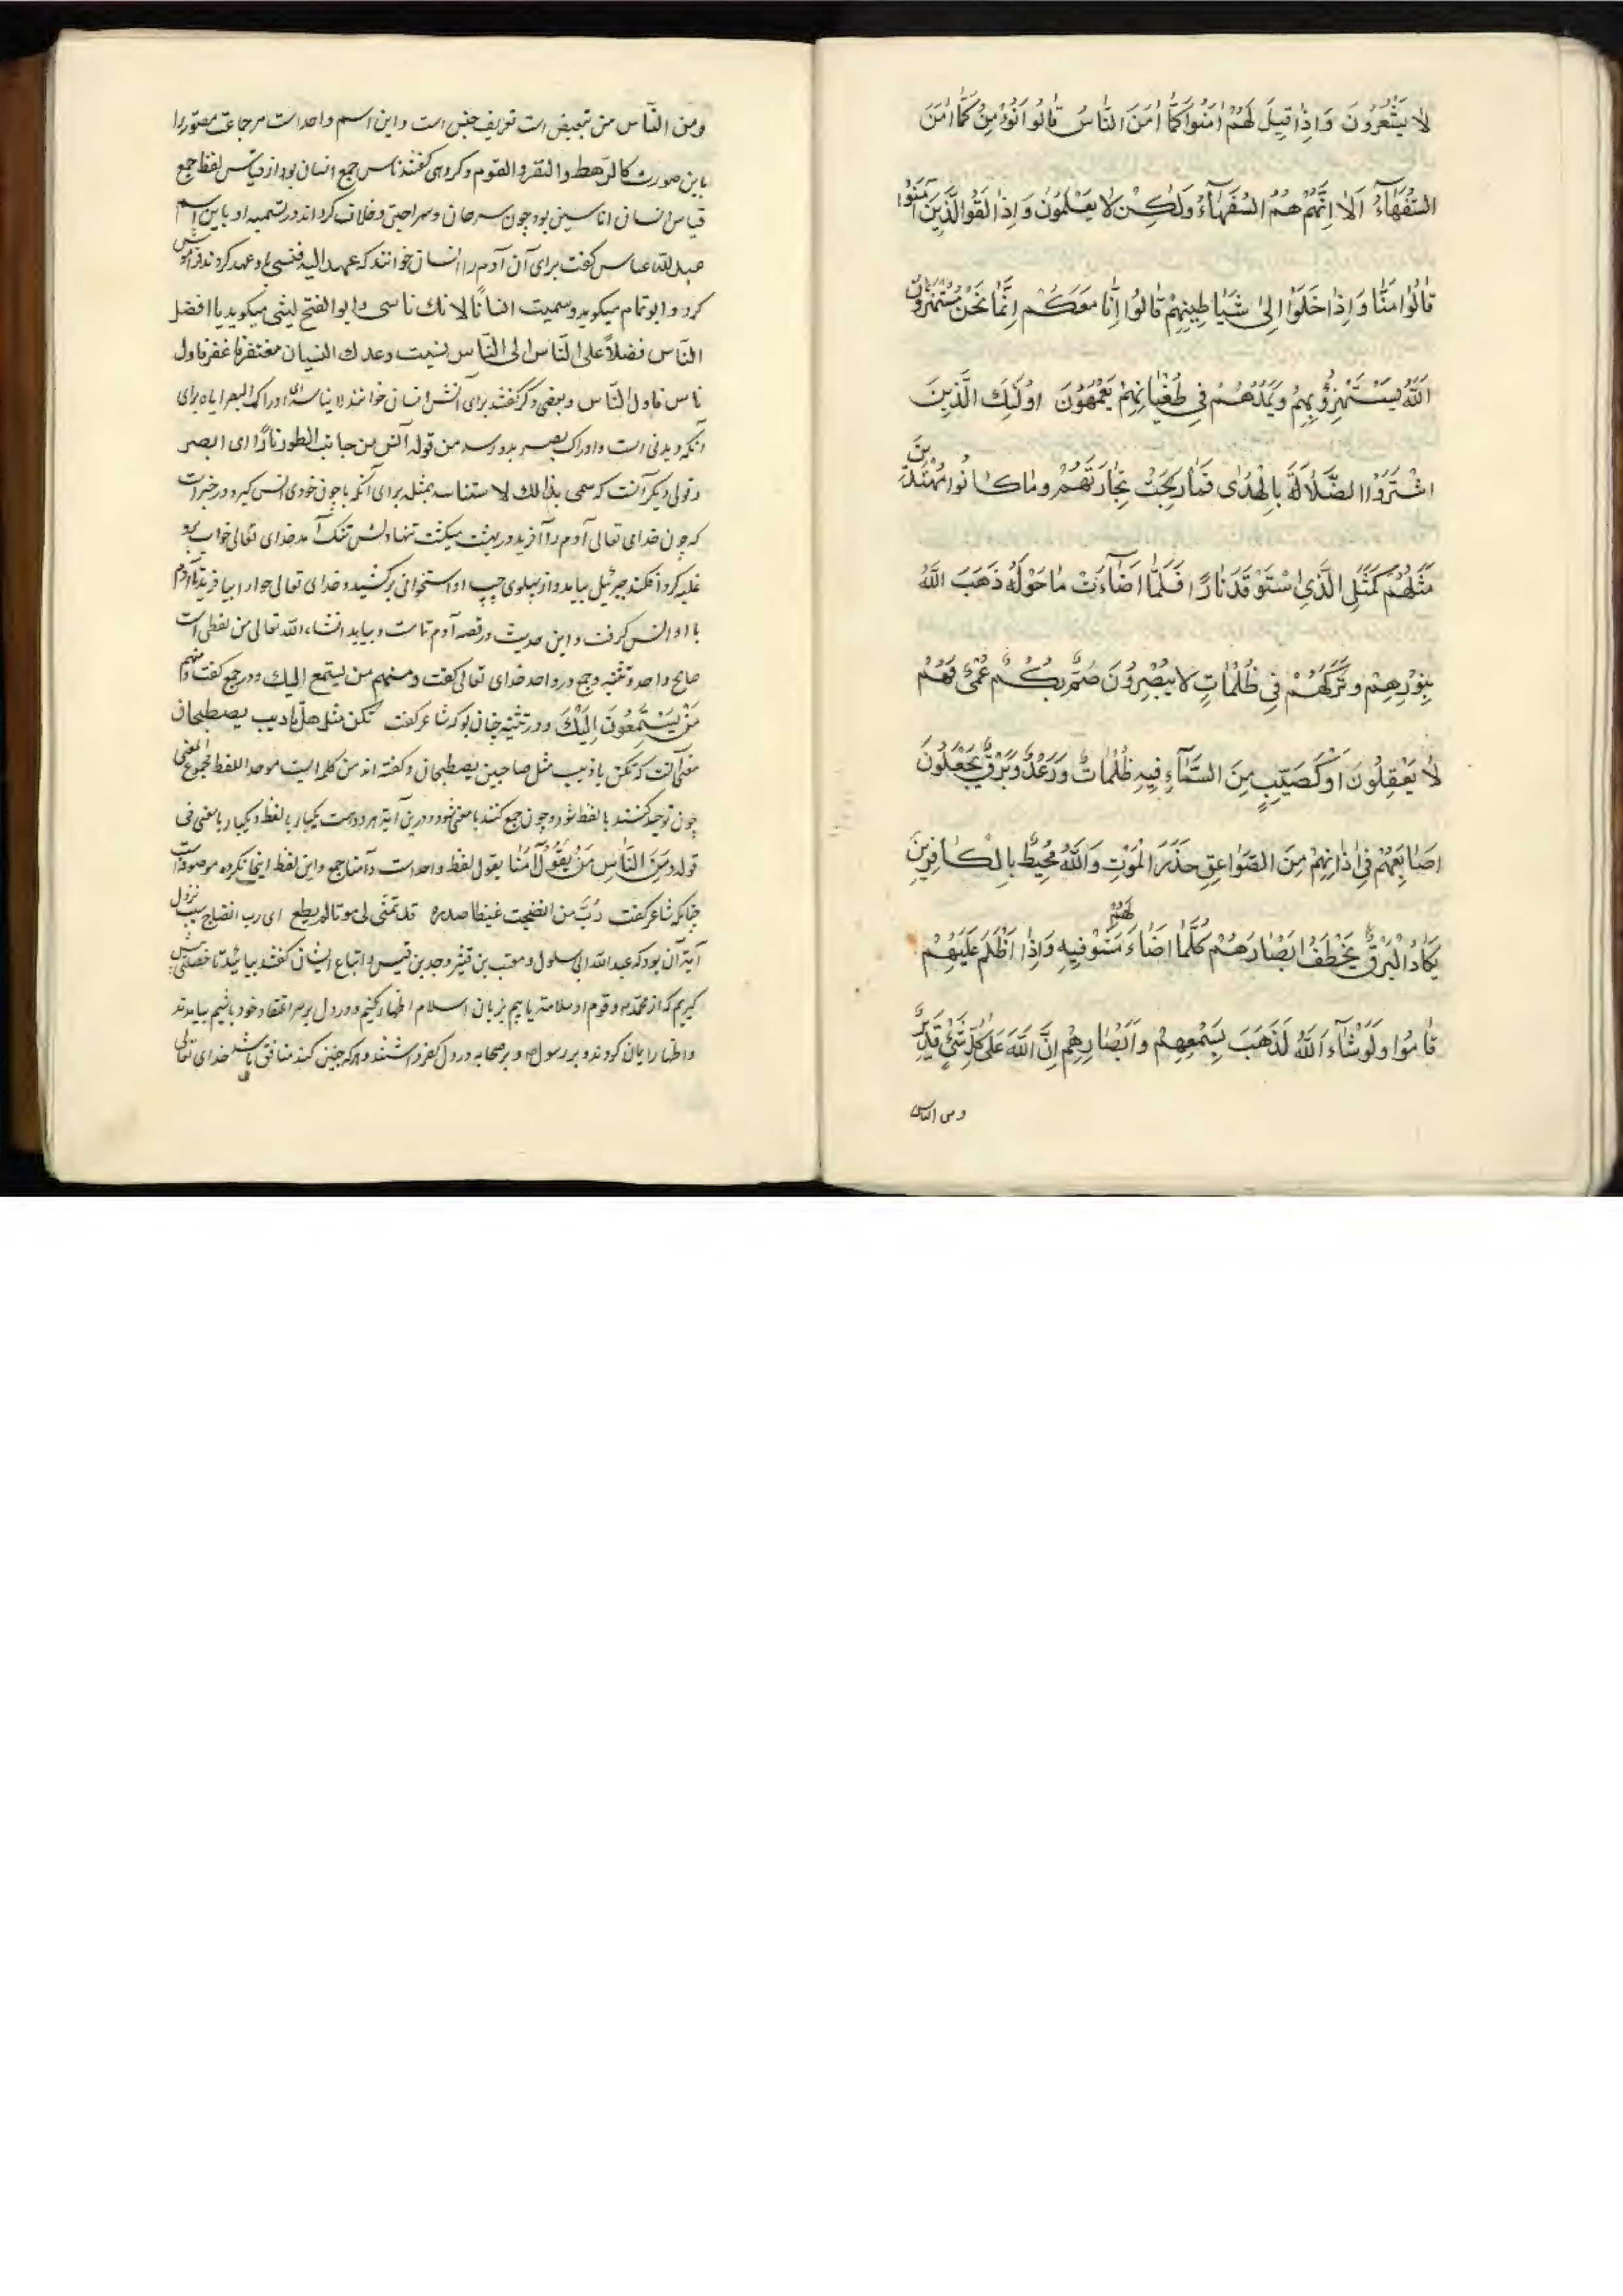 لا يَشْعُرُونَ وَاِذٰا قيِلَ لَهُمْ اٰمِنُوا كَمٰا اٰمَنَ النّٰاسُ قٰالُوا اَنُؤْمِنُ كَمٰا اٰمَنَ
السُّفَهٰآءُ اَلٰا اِنَّهُمْ هُمُ السُّفَهٰآءُ وَلٰكِنْ لا يَعْلَمُونَ وَاِذٰا لَقُوا الَّذيِنَ اٰمَنُوا
قٰالُوا اٰمَنّٰا وَاِذٰا خَلَوْا اِلىٰ شَيٰاطيِنِهِمْ قٰالُوا اِنّٰا مَعَكُمْ اِنَّمٰا نَحْنُ مُسْتَهْزِؤُنَ
اَللّٰهُ يَسْتَهْزِؤُ بِهِمْ وَيَمُدُّهُمْ فيِ طُغْيٰانِهِمْ يَعْمَهُونَ اُولٰئِكَ الَّذيِنَ
اشْتَرَوُا الضَّلٰالَةَ بِالْهُدٰى فَمٰا رَبِحَتْ تِجٰارَتُهُمْ وَمٰا كٰانُوا مُهْتَديِنَ
مَثَلُهُمْ كَمَثَلِ الَّذيِ اسْتَوْقَدَ نٰارًا فَلَمّٰا اَضٰآءَتْ مٰا حَوْلَهُ ذَهَبَ اللّٰهُ
بِنُورِهِمْ وَتَرَكَهُمْ فيِ ظُلُمٰاتٍ لا يُبْصِرُونَ صُمٌّ بُكْمٌ عُمْىٌ فَهُمْ
لٰا يَعْقِلُونَ اَوْ كَصَيِّبٍ مِنَ السَّمٰآءِ فيِهِ ظُلُمٰاتٌ وَرَعْدٌ وَبَرْقٌ يَجْعَلُونَ
اَصٰابِعَهُمْ فيِ اٰذٰانِهِمْ مِنَ الصَّوٰاعِقِ حَذَرَ الْمَوْتِ وَاللّٰهُ مُحيِطٌ بِالْكٰافِريِنَ
يَكٰادُ الْبَرْقُ يَخْطَفُ اَبْصٰارَهُمْ كُلَّمٰا اَضٰاءَ لَهُمْ مَشَوْا فيِهِ وَاِذٰا اَظْلَمَ عَلَيْهِمْ
قٰامُوا وَلَوْ شٰآءَ اللّٰهُ لَذَهَبَ بِسَمْعِهِمْ وَاَبْصٰارِهِمْ اِنَّ اللّٰهَ عَلىٰ كُلِّ شَيْءٍ قَديِرٌ
و من الناس
ومن النّاس من تبعیض است تعریف جنس است و این اسم واحد است مر جماعت مصوّر را
باین صورت کالرّهط والنّفر والقوم و کروهی کفتند ناس جمع انسان بود از قیاس لفظ جمع
قیاس انسان اناسین بود چون سرحان و سراحین و خلاف کرده‌اند در تسمیه او باین اسم
عبدالله عباس کفت برای آن آدم را انسان خوانند که عهد الیه فنسی با او عهد کردند فراموش
کرد و ابوتمام میکوید و سمیت انسانًا لانك ناسی و ابوالفتح لیثی میکوید یا افضل
النّاس فضلاً علی النّاس الی النّاس نسیت وعدك النسیان مغتفر فاغفر فاول
ناس فاول النّاس و بعضی دکر کفتند برای آنش انسان خوانند
آنکه دیدنی است و ادراك بصر بدو رسد من قوله آنس من جانب الطور نارًا ای ابصر
و قولی دیکر آنست که سمی بذالك لاستئناسه بمثله برای آنکه با چون خودی انس کیرد و در خبر است
که چون خدای تعالی آدم را آفرید در بهشت میکشت تنها دلش تنك آمد خدای تعالی خواب برو
غلبه کرد افکند جبرئیل بیامد و از پهلوی چپ او استخوانی برکشید و خدای تعالی حوا را بیافرید تا آدم
با او انس کرفت و این حدیث در قصه آدم تمامت بیاید انشاءالله تعالی من لفظی است
صالح واحد و تثنیه و جمع در واحد خدای تعالی کفت ومنهم من یستمع الیك و در جمع کفت ومنهم
مَنْ يَسْتَمِعُونَ اِلَيْكَ و در تثنیه چنان بود که شاعر کفت تکن مثل من یاذیب یصطبحان
معنی آنست که تکن یاذیب مثل صاحبین یصطبحان و کفته‌اند من کلمه ایست موحد اللفظ مجموع المعنی
چون توحید کنند با لفظ شود و چون جمع کنند با معنی شود و درین آیة هر دو هست یکبار با لفظ و یکبار با معنی فی
قوله وَمِنَ النّٰاسِ مَنْ يَقُولُ اٰمَنّٰا یقول لفظ واحد است و آمنا جمع و این لفظ اینجا نکره موصوفه است
چنانکه شاعر کفت رُبَّ من انضجت غیظا صدره قد تمنّی لی موتا لم یطع ای رب انضاج سبب نزول
آیة آن بود که عبدالله ابی سلول و معتب بن قشیر و جد بن قیس و اتباع ایشان کفتند بیائید تا خصلتی پیش
کیریم که از محمد و قوم او سلامت یابیم بزبان اسلام اظهار کنیم و در دل بر سر اعتقاد خود باشیم بیامدند
و اظهار ایمان کردند و بر رسول و بر صحابه و در دل کفر داشتند و هر که چنین کند منافق باشد خدای تعالی